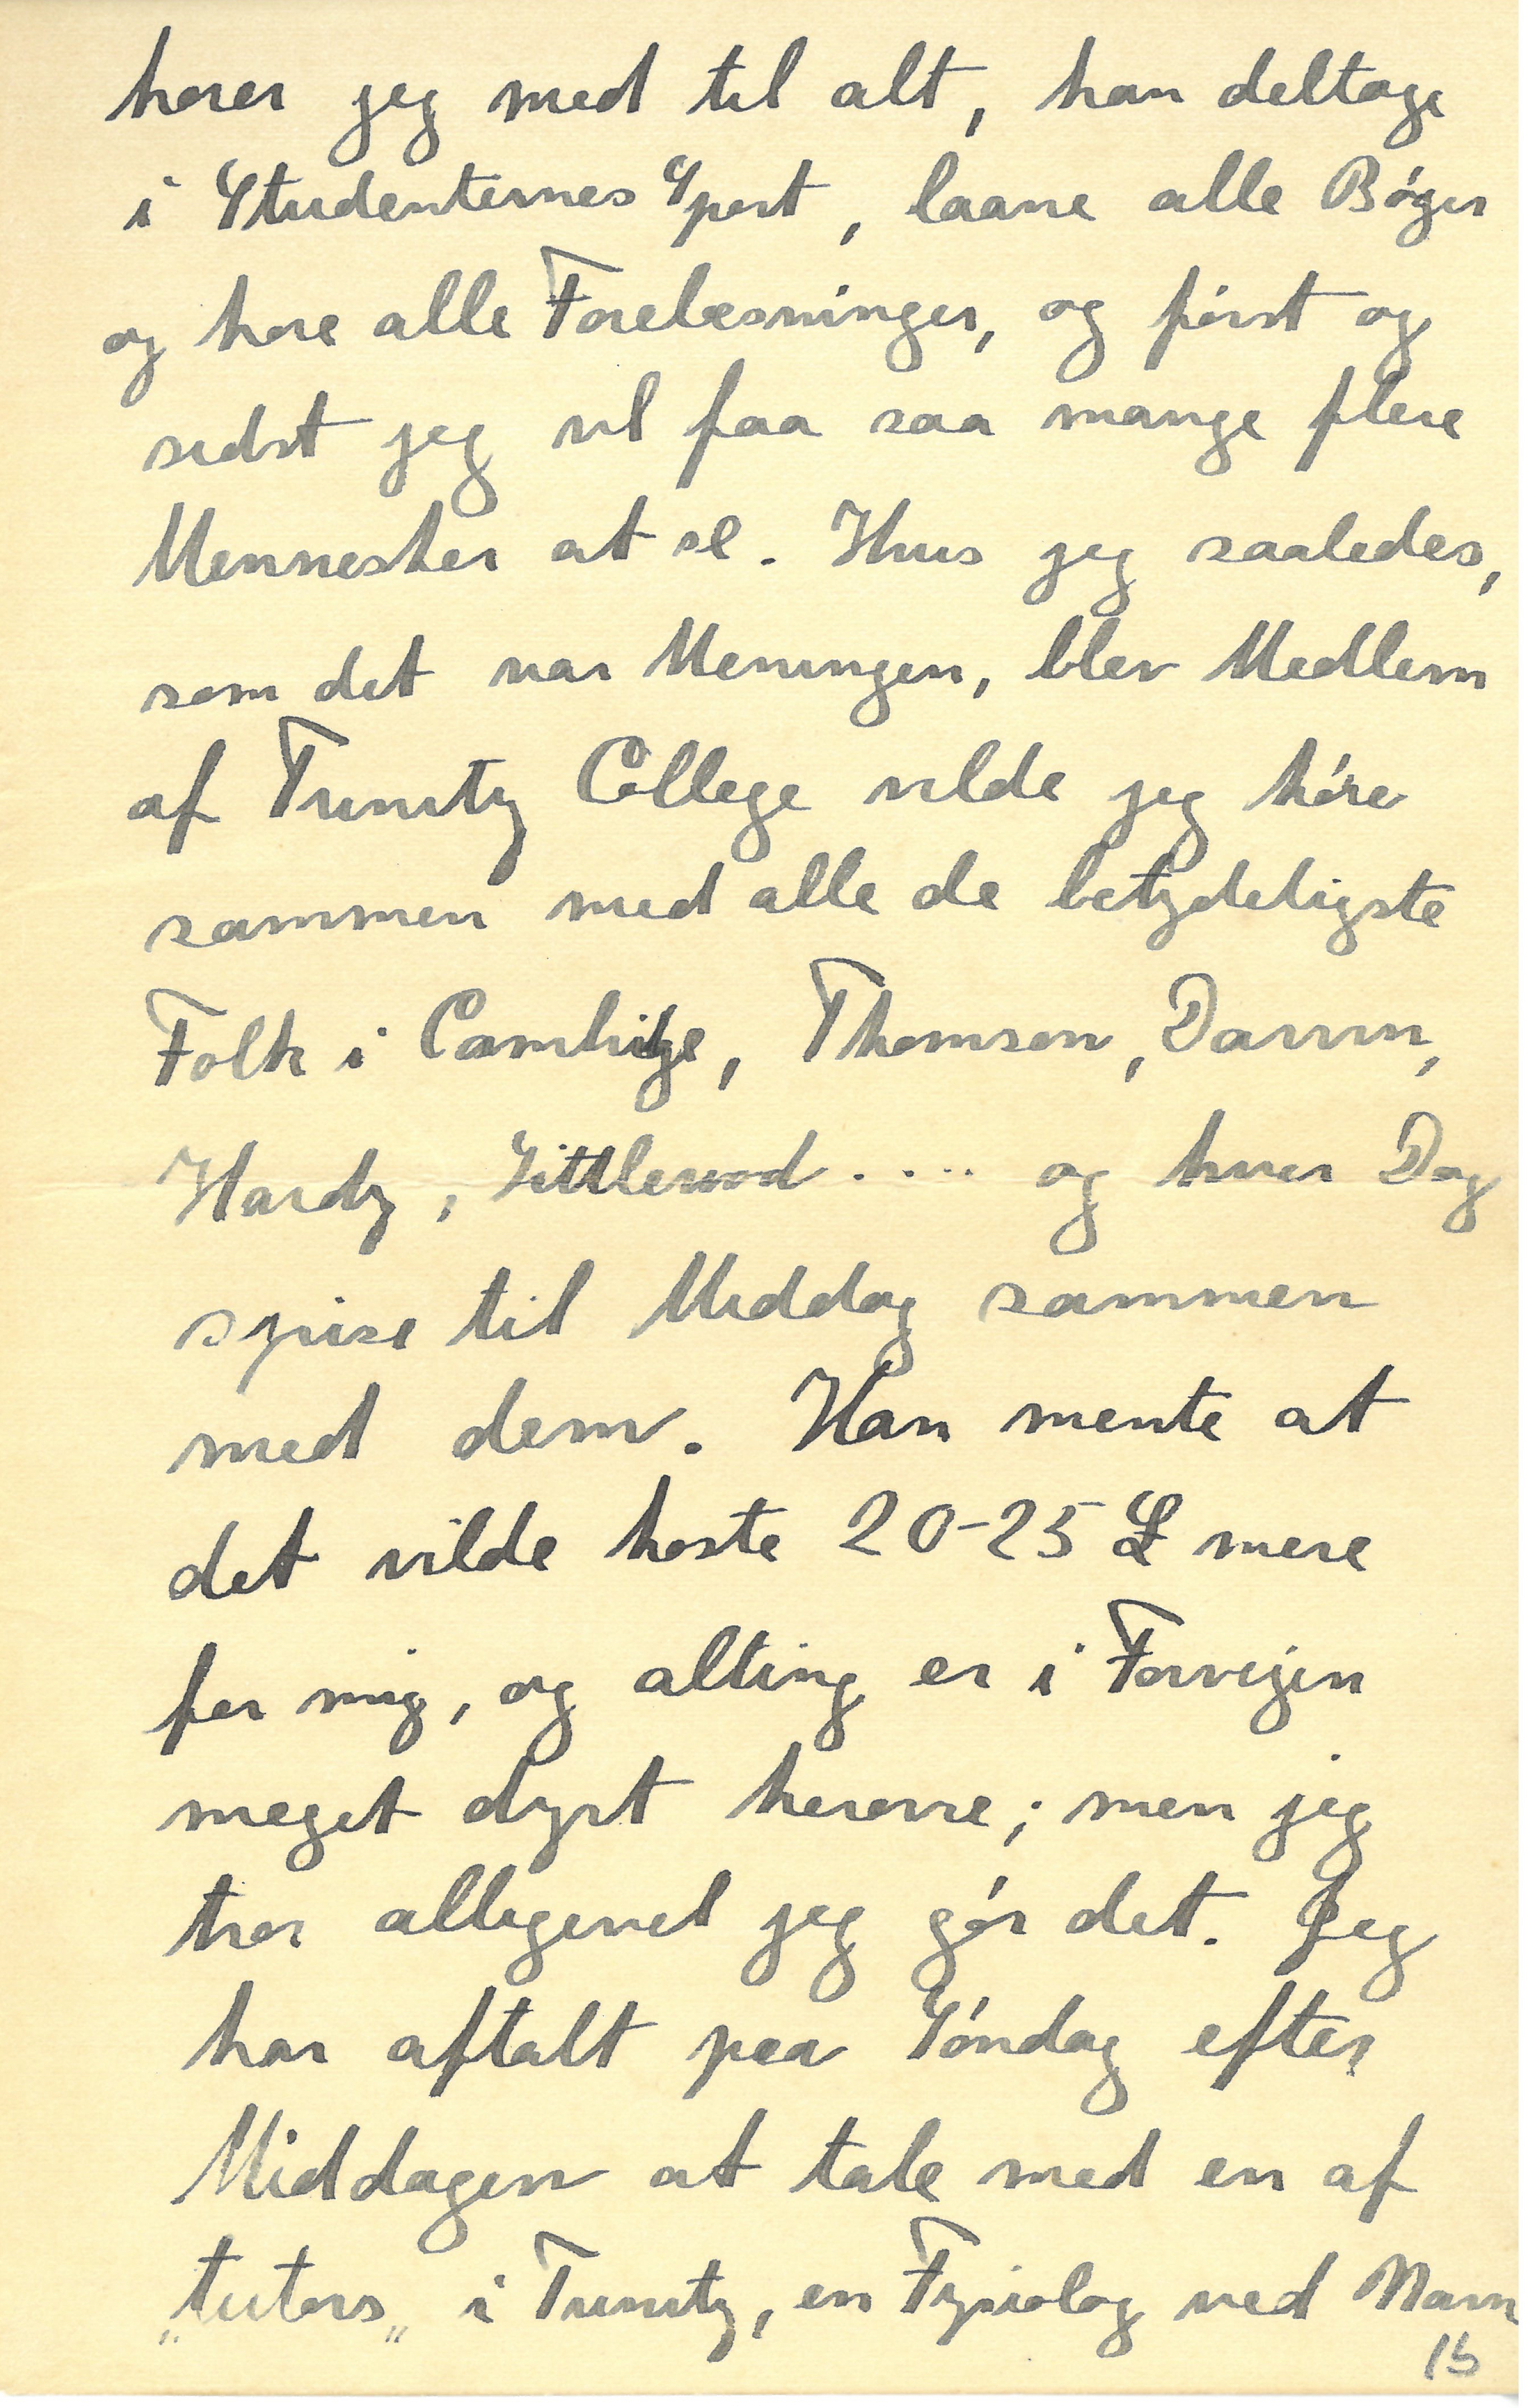 hører jeg med til alt, kan deltage
i Studenternes Sport, laane alle Bøger
og høre alle Forelæsninger, og først og
sidst jeg vil faa saa mange flere
Mennesker at se. Hvis jeg saaledes,
som det var Meningen, blev Medlem
af Trinity College vilde jeg høre
sammen med alle de betydeligste
Folk i Cambridge, Thomson, Darwin,
Hardy, Littlewood ..... og hver Dag
spise til Middag sammen
med dem. Han mente at
det vilde koste 20-25 £ mere
for mig, og alting er i Forvejen
meget dyrt herovre; men jeg
tror alligevel jeg gør det. Jeg
har aftalt paa Søndag efter
Middagen at tale med en af
„tutors„ i Trinity, en Fysiolog ved Navn
15